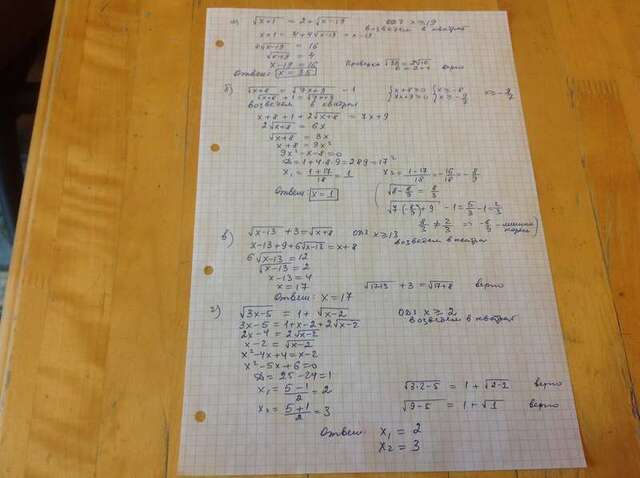 а) √x+1 = 2+√x-19 ОДЗ x≥19
возведем в квадрат
x+1 = 4+4√x-19 + x-19
4√x-19 = 16
√x-19 = 4
x-19=16
Ответ: x = 35
б) √x+8 = √7x+9 - 1 {x+8≥0 {x≥-8 x≥-9/7
√x+8 + 1 = √7x+9 {7x+9≥0 {x≥-9/7
возведем в квадрат
x+8+1+2√x+8 = 7x+9
2√x+8 = 6x
√x+8 = 3x
x+8 = 9x²
9x²-x-8=0
D=1+4·8·9=289=17²
x₁ = 1+17/18 = 1 x₂ = 1-17/18 = -16/18 = -8/9
Ответ: x=1
√8-8/9 = 8/3
√7·(-8/9)+9 - 1 = 5/3 - 1 = 2/3
8/3 ≠ 2/3 => -8/9 - лишний корень
в) √x-13 + 3 = √x+8 ОДЗ x≥13
возведем в квадрат
x-13+9+6√x-13 = x+8
6√x-13 = 12
√x-13 = 2
x-13=4
x=17 √17-13 + 3 = √17+8 верно
Ответ: x=17
г) √3x-5 = 1 + √x-2 ОДЗ x ≥ 2
возведем в квадрат
3x-5 = 1+x-2+2√x-2
2x-4 = 2√x-2
x-2 = √x-2
x²-4x+4=x-2
x²-5x+6=0
D=25-24=1
x₁ = 5-1/2 = 2 √3·2-5 = 1 + √2-2 верно
x₂ = 5+1/2 = 3 √9-5 = 1 + √1 верно
Ответ: x₁ = 2
x₂ = 3